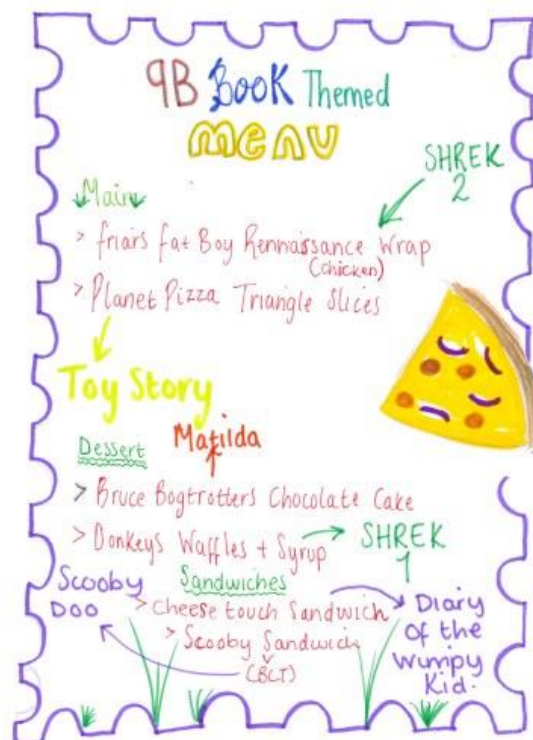 9B Book Themed
menu
SHREK
2
Main
> friars fat Boy Rennaissance Wrap
(chicken)
> Planet Pizza Triangle Slices
Toy Story
Matilda
Dessert
> Bruce Bogtrotters Chocolate Cake
> Donkeys Waffles + Syrup
SHREK
1
Sandwiches
Scooby
Doo
> Cheese touch Sandwich
> Scooby Sandwich
(BLT)
Diary
of the
Wimpy
Kid.